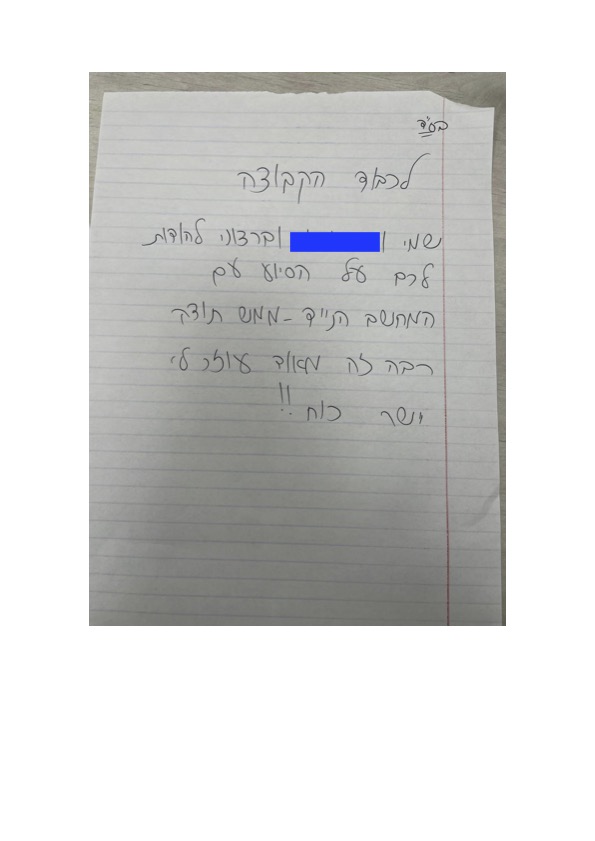 בס"ד
לכבוד הקבוצה
שמי וברצוני להודות
לכם על הסיוע עם
המחשב הנייד - ממש תודה
רבה זה מאוד עוזר לי
יישר כוח !!